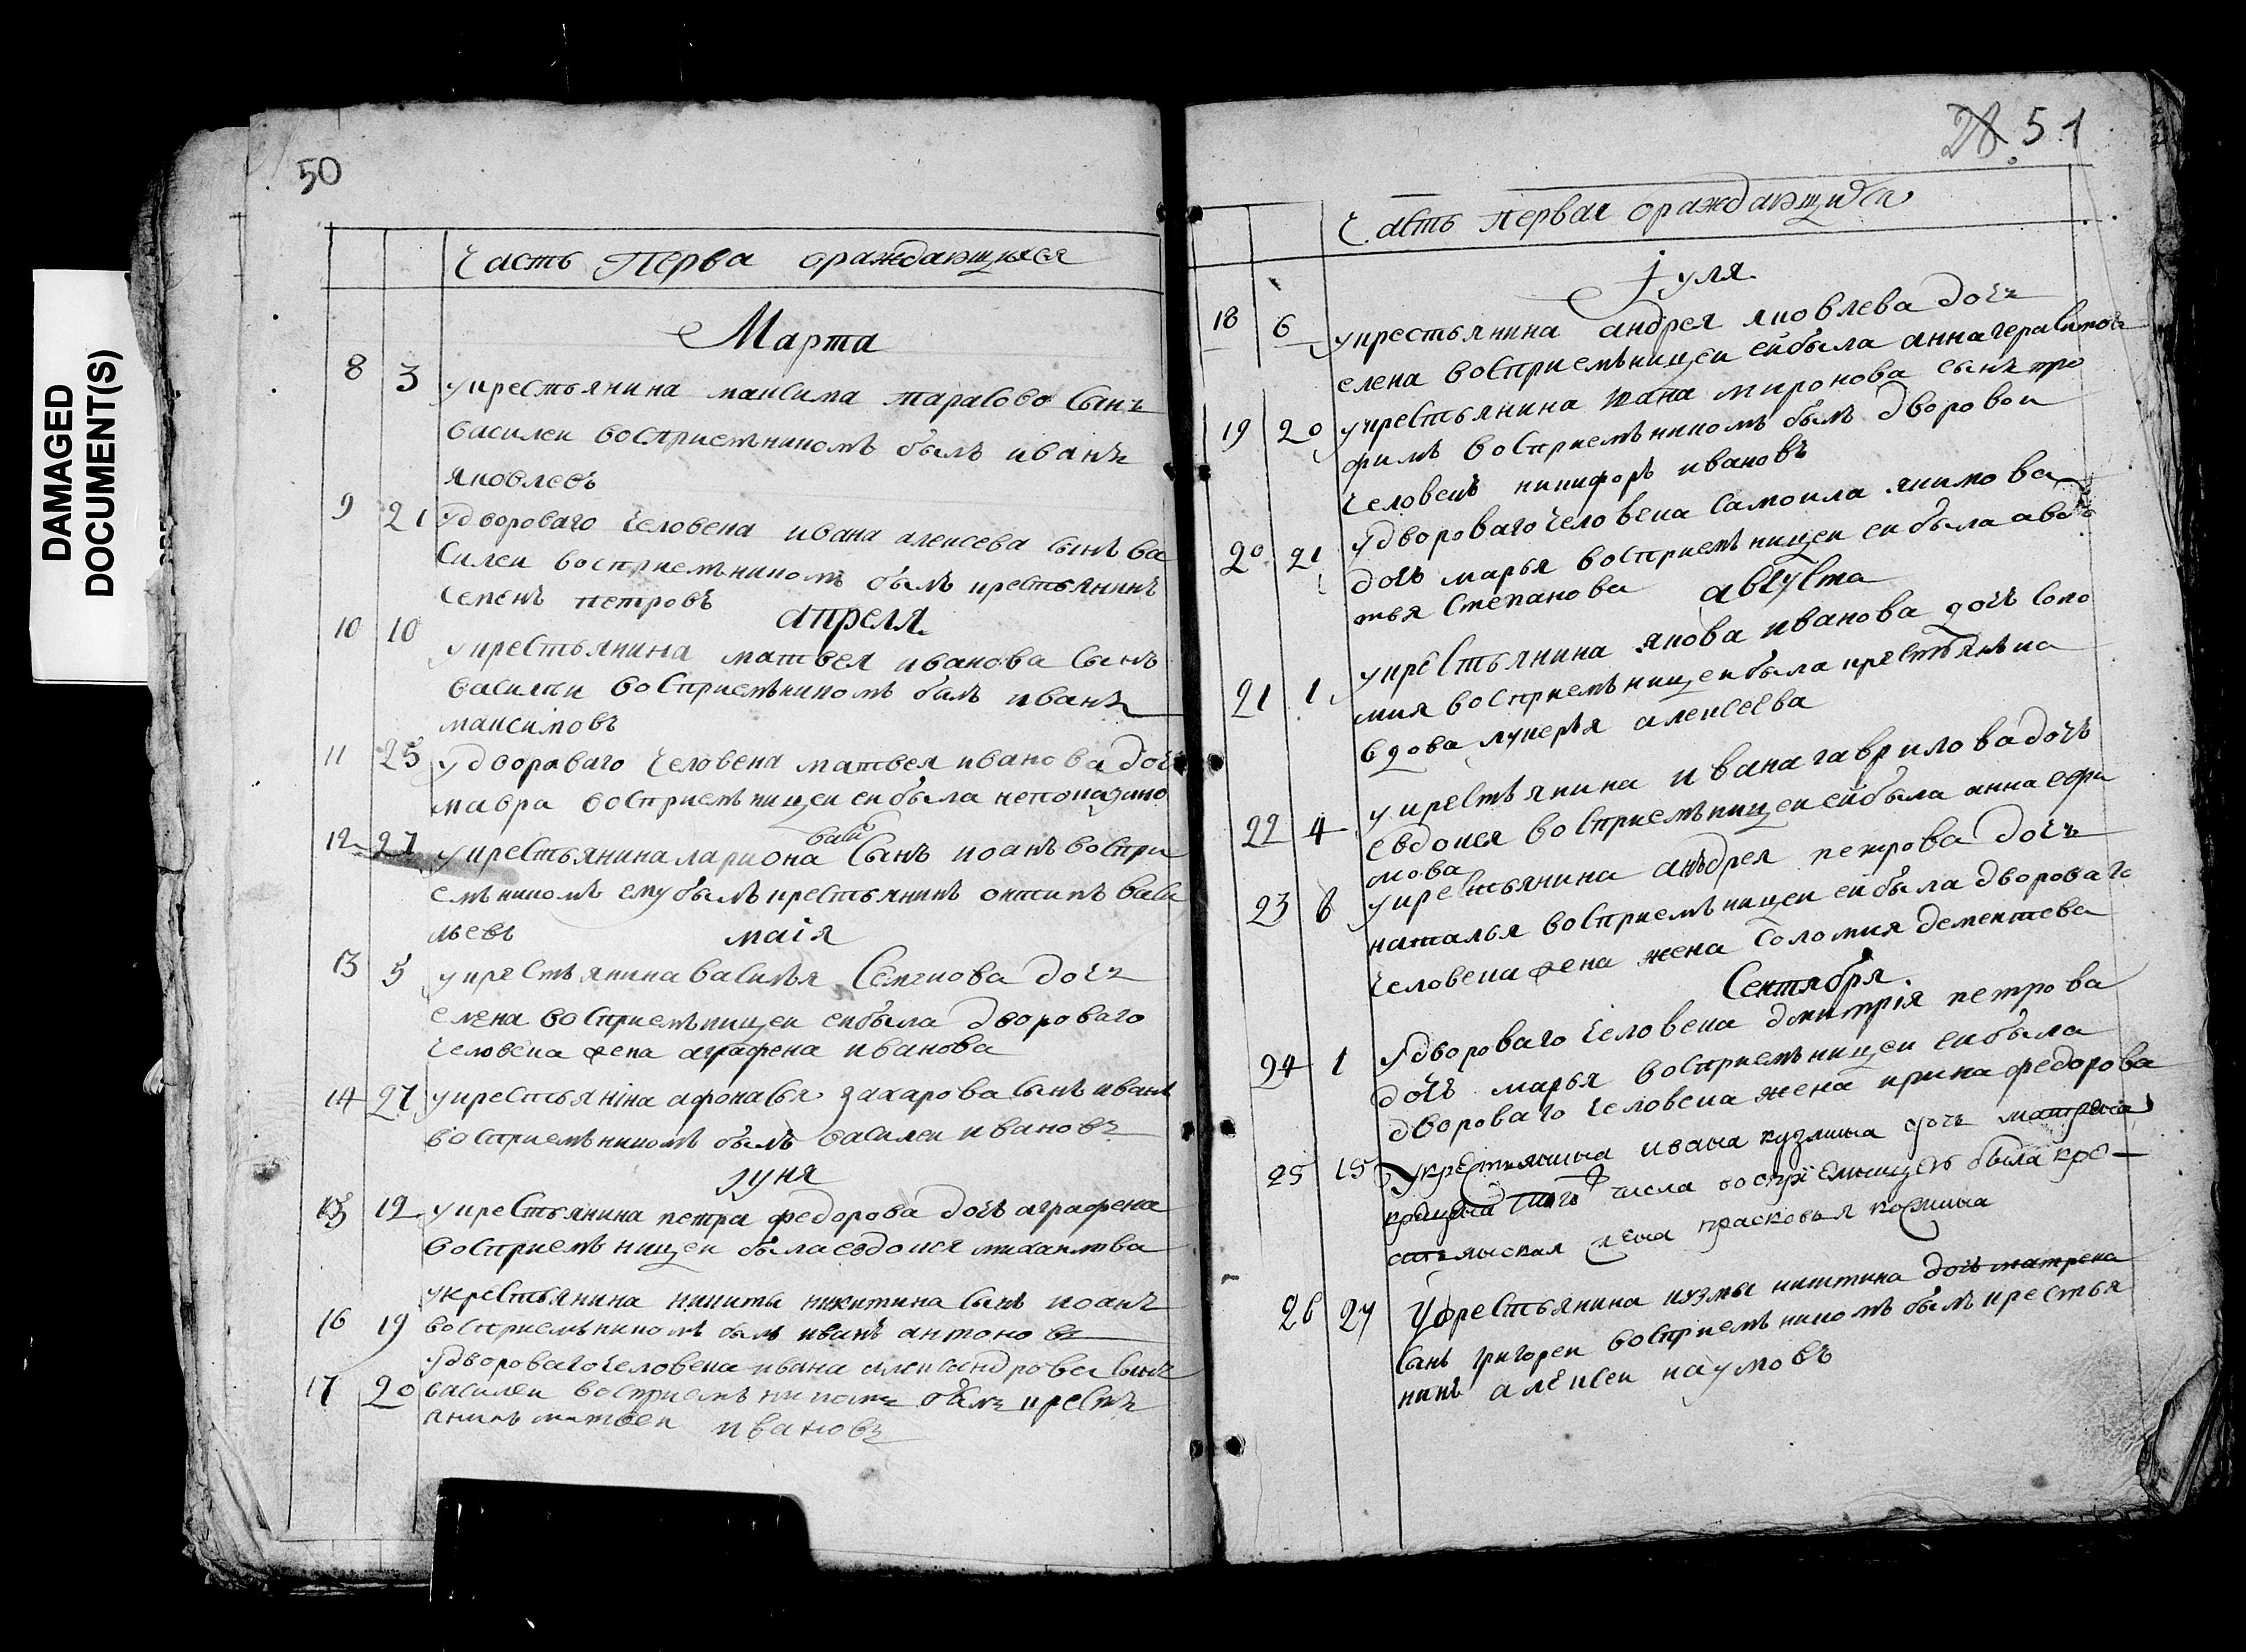 DAMAGED
DOCUMENT(S)
50
Часть Перва ораждающихся
Марта
8 3 у крестьянина максима тарасова сынъ
василеи восприемъникомъ былъ иванъ
яковлевъ
9 21 у двороваго человека ивана алексева сынъ ва
силеи восприемъникомъ былъ крестьянинъ
семенъ петровъ
апреля
10 10 у крестьянина матвея иванова сынъ
василеи восприемъникомъ былъ иванъ
максимовъ
11 25 у двороваго человека матвея иванова дочь
мавра восприемъницеи еи была
12 27 у крестьянина лариона васи сынъ иоанъ воспри
емъникомъ ему былъ крестьянинъ васи
льевъ
маiя
13 5 у крестьянина василья Семенова дочъ
елена восприемъницеи еи была двороваго
человека жена аграфена иванова
14 27 у крестьянiна афонасья захарова сынъ иванъ
восприемъникомъ былъ василеи ивановъ
iуня
15 12 у крестьянина петра федорова дочь аграфена
восприемъницеи была евдокея михаилова
16 19 у крестьянина никиты никитина сынъ иоанъ
восприемъникомъ былъ иванъ антоновъ
17 20 у двороваго человека ивана александрова сынъ
василеи восприемъникомъ былъ кресть
янинъ матвеи ивановъ
28. 51
Часть первая ораждающихся
iуля
18 6 у крестьянина андрея яковлева дочъ
елена восприемъницеи еи была анна герасимов
19 20 у крестьянина ивана миронова сынъ тро
фимъ восприемъникомъ былъ дворовои
человекъ никифоръ ивановъ
20 21 у двороваго человека самоила якимова
дочь марья восприемъницеи еи была авдо
тья степанова
августа
21 1 у крестьянина якова иванова дочь соло
мия восприемъницеи была крестьянъка
вдова лукерья алексеева
22 4 у крестьянина ивана гаврилова дочь
евдокея восприемъницеи еи была анна ефи
мова
23 6 у крестьянина анъдрея петрова дочъ
наталья восприемъницеи еи была двороваго
человека жена жена соломия дементева
Сентября.
24 1 у двороваго человека димитрiя петрова
дочь марья восприемъницеи еи была
двороваго человека жена ирина федорова
25 15 У крестьянина ивана кузмина дочь матрена
крещена того числа восприемницею была кре-
стьянская жена прасковья козмина
26 27 У крестьянина кузмы никитина дочь матрена
сынъ григореи восприемъникомъ былъ крестья
нинъ алексеи наумовъ